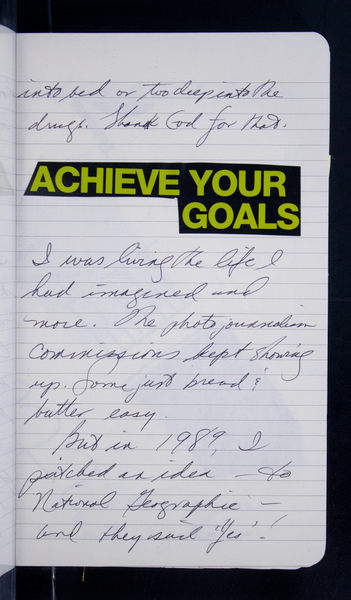 into bed or too deep into the
drugs. Thank God for that.
ACHIEVE YOUR
GOALS
I was living the life I
had imagined and
more. The photojournalism
commissions kept showing
up. Some just bread &
butter easy.
But in 1989, I
pitched an idea – to
National Geographic –
and they said 'Yes'!